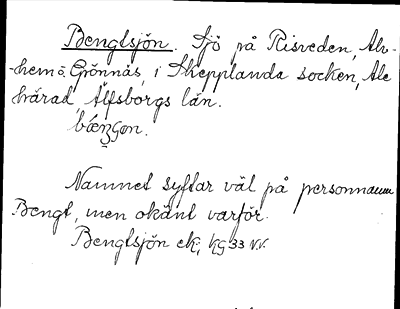 Bengtsjön. Sjö på Risveden, Alv-
-hem o. Grönnäs, i Skepplanda socken, Ale
härad, Älfsborgs län.
Namnet syftar väl på personnamn
Bengt, men okänt varför.
Bengtsjön ek; kg 33 v.v.